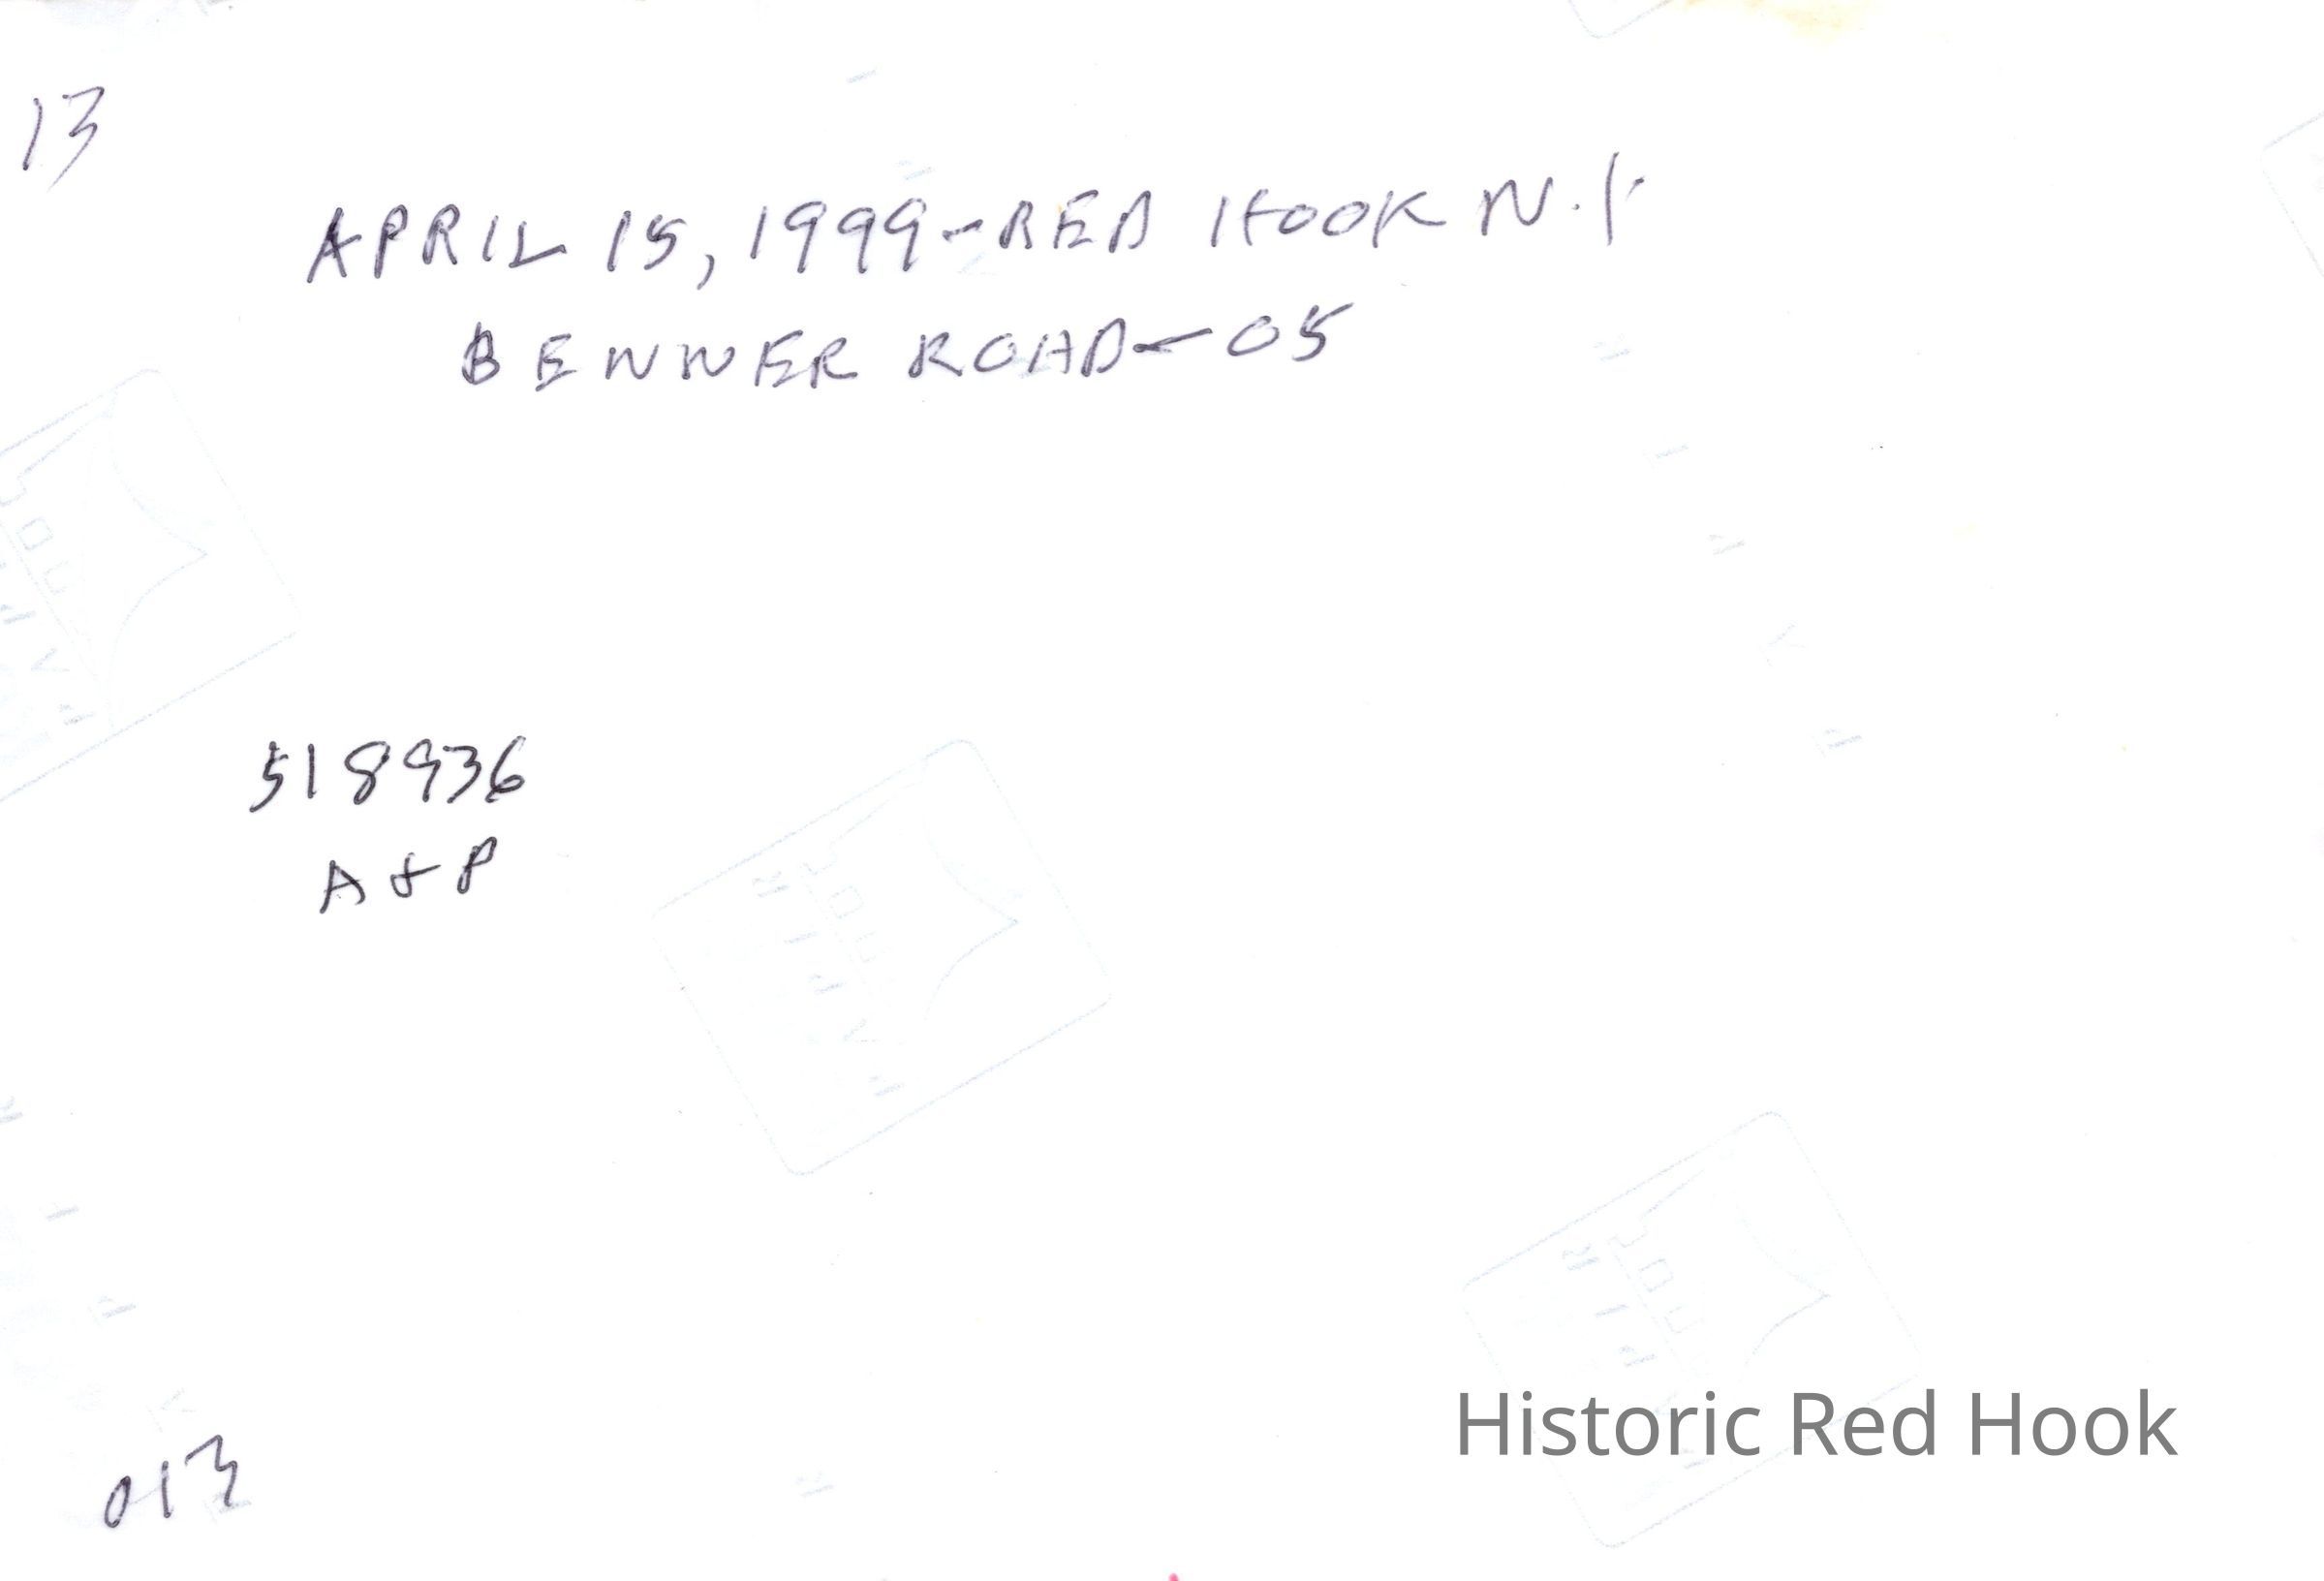 13
APRIL 15, 1999-RED HOOK N.Y.
BENNER ROAD-05
518936
A & P
013
Historic Red Hook